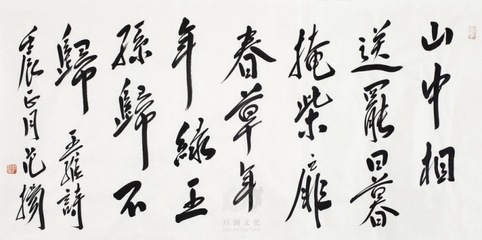 山中相
送罷日暮
掩柴扉
春草年
年綠王
孫歸不
歸 王維詩
壬辰正月范